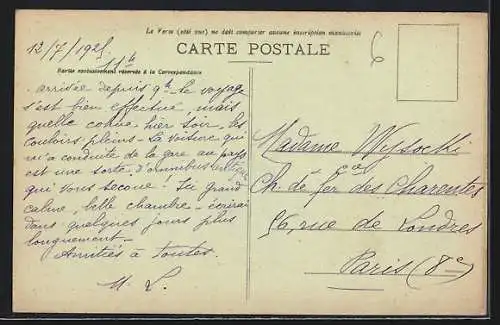 Le Verso (côté vue) ne doit comporter aucune inscription manuscrite
CARTE POSTALE
Partie exclusivement réservée à la Correspondance
12/7/1925
11h
6
arrivée depuis 9h le voyage
s'est bien effectué mais
quelle cohue hier soir les
couloirs pleins. La voiture qui
m'a conduite de la gare au pays
est une sorte d'omnibus antique
qui vous secoue. Ici grand
calme, belle chambre - écrirai
dans quelques jours plus
longuement -
Amitiés à toutes.
M. L.
Madame Wysocki
Cie
Ch. de fer des Charentes
56, rue de Londres
Paris (8e)